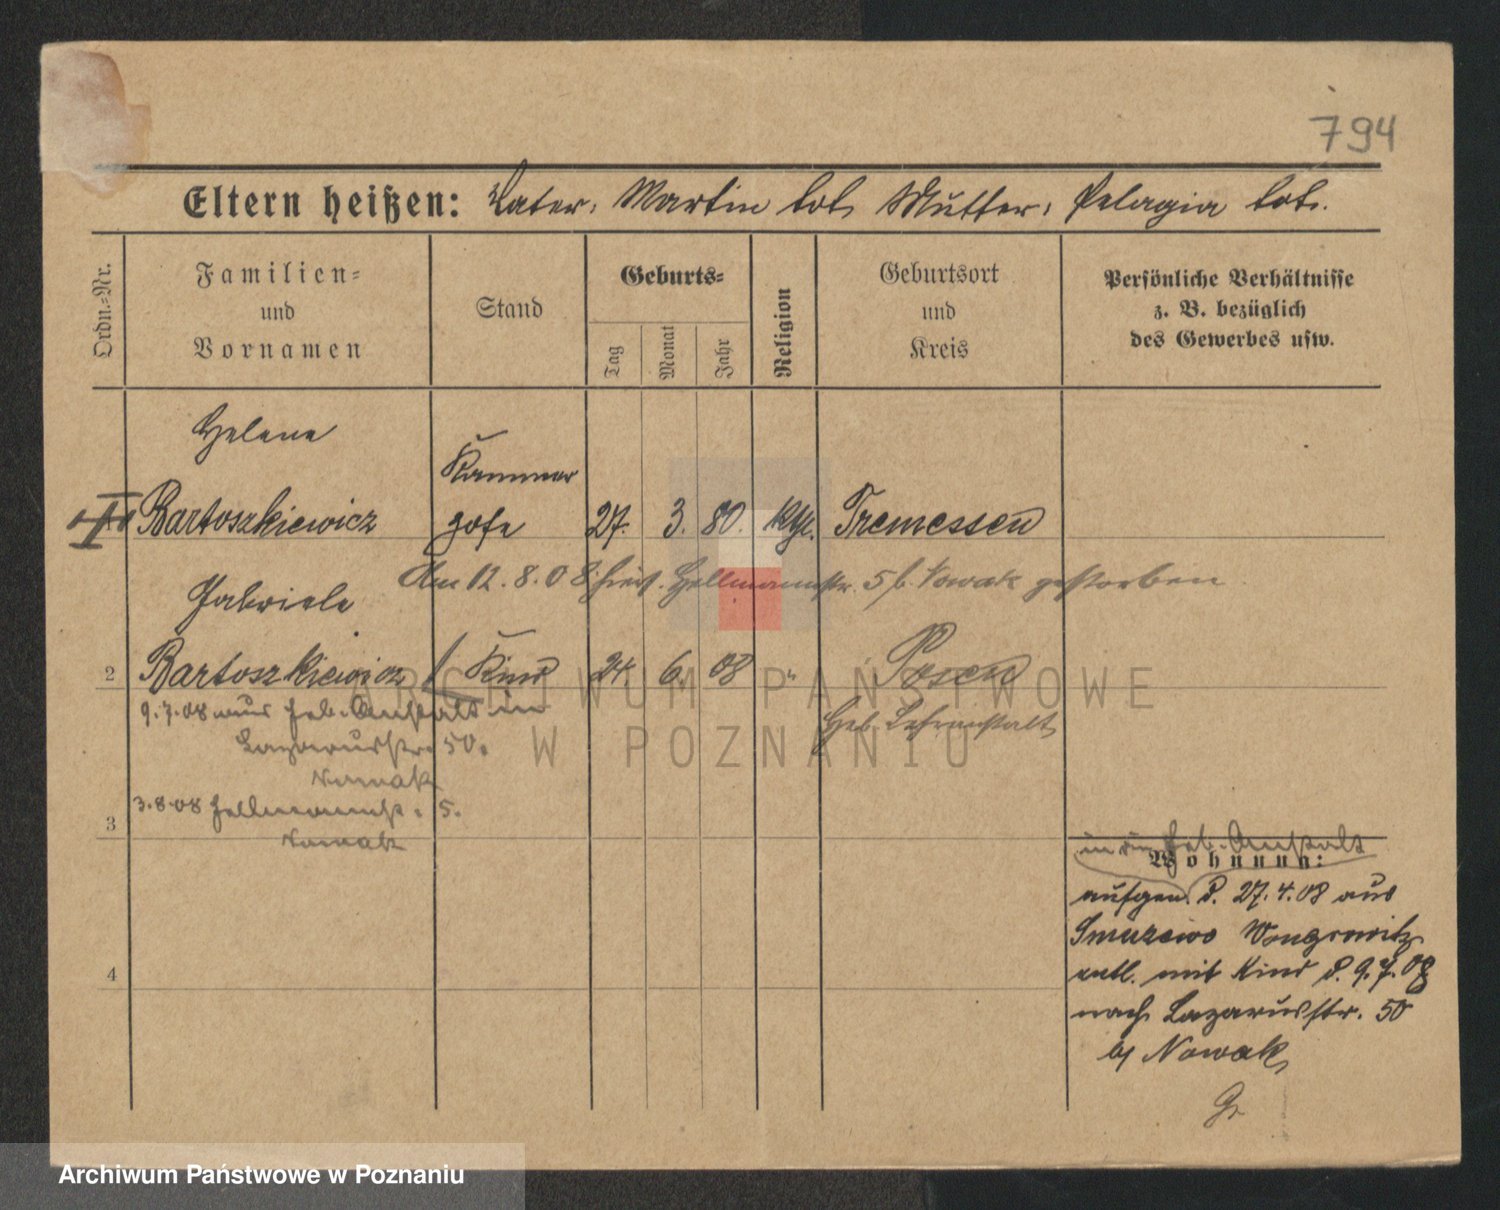 794
Eltern heißen: Vater: Martin tot, Mutter: Pelagia tot.
Ordn.-Nr.
Familien-
und
Vornamen
Stand
Geburts-
Tag
Monat
Jahr
Religion
Geburtsort
und
Kreis
Persönliche Verhältnisse
z. B. bezüglich
des Gewerbes usw.
Helene
Kammer
Bartoszkiewicz zofe 27. 3. 80. kth. Tremessen
Am 12. 8. 08 hies. Hellmannstr. 5 b. Nowak gestorben
Gabriele
2 Bartoszkiewicz Kind 24. 6. 08 " Posen
9.7.08 aus Heb. Anstalt in
Geb. Lehranstalt
Lazarusstr. 50.
Nowak
3.8.08 Hellmannstr. 5.
3
Nowak
in die Heb. Anstalt
Wohnung:
aufgen. d. 27.4.08 aus
Smuszewo Wongrowitz
entl. mit Kind d. 9.7.08
4
nach Lazarusstr. 50
bei Nowak
Gr
ARCHIWUM PAŃSTWOWE
W POZNANIU
Archiwum Państwowe w Poznaniu